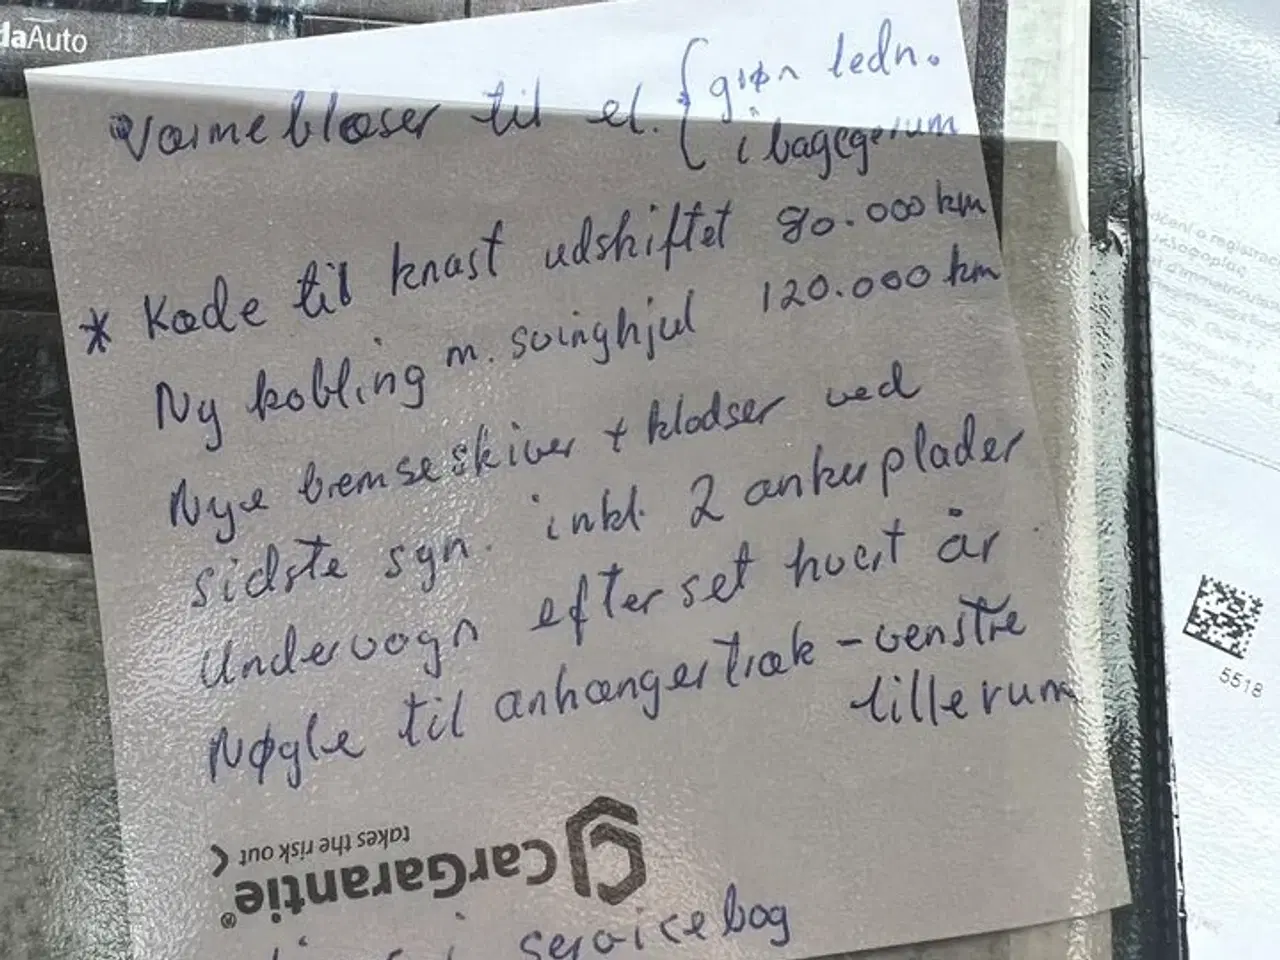 daAuto
Varmeblæser til el. { grøn ledn.
i bagagerum
* Kæde til knast udskiftet 80.000 km
Ny kobling m. svinghjul 120.000 km
Nye bremseskiver + klodser ved
sidste syn. inkl. 2 ankerplader
Undervogn efterset hvert år
Nøgle til anhængertræk - venstre
lillerum
CarGarantie®
takes the risk out
servicebog
5518